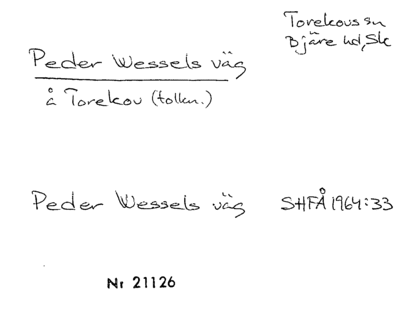 Torekovs sn
Bjäre hd, Sk
Peder Wessels väg
å Torekov (tolkn.)
Peder Wessels väg SHFÅ 1964:33
Nr 21126